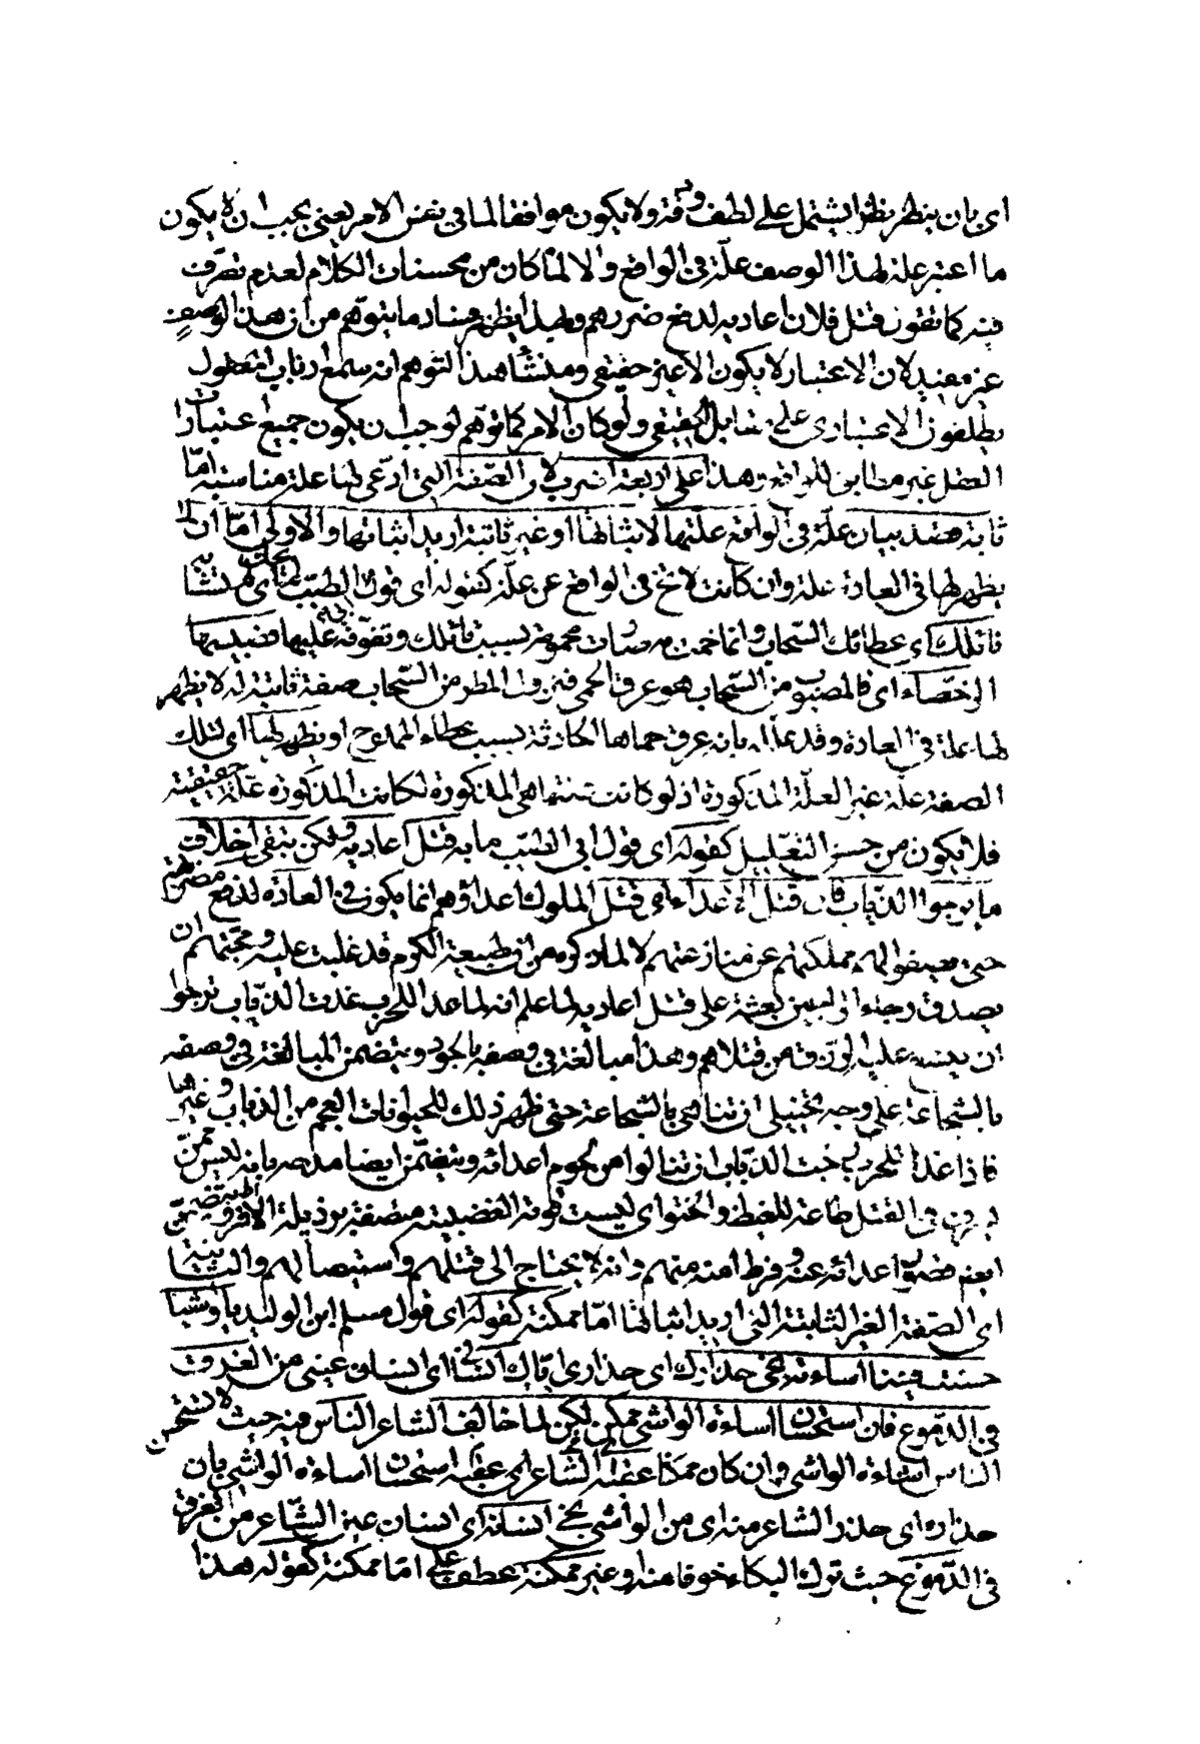 اى بان ينظر نظرا يشتمل على لطف ودقة ولا يكون موافقا لما فى نفس الامر يعنى يجب ان لا يكون
ما اعتبر علة لهذا الوصف علّة فى الواقع والا لما كان من محسنات الكلام لعدم تصرّف
فيه كما تقول قتل فلان اعاديه لدفع ضررهم وبهذا يظهر فساد ما يتوهم من ان هذا الوصف
غير مفيد لان الاعتبار لا يكون الا غير حقيقى ومنشأ هذا التوهم انه سمع ارباب المعقول
يطلقون الاعتبارى على مقابل الحقيقى ولو كان الامر كما توهّم لوجب ان يكون جميع اعتبارات
العقل غير مطابق للواقع وهذا على اربعة اضرب لان الصّفة التى ادّعى لها علة مناسبة امّا
ثابتة قصد بيان علّة فى الواقع علّتها لا اثباتها او غير ثابتة اريد اثباتها والاولى امّا ان لا
يظهر لها فى العادة علة وان كانت لا تخ فى الواقع عن علّة كقوله اى قول ابى الطيّب لم يحك اى لم تشابه
نائلك اى عطائك السّحاب وانما حمت به صارت محمومة بسبب نائلك وتفوّقه عليها فصبيبها
الرحضاء اى فالمصبوب من السّحاب هو عرق الحمى فنزول المطر من السّحاب صفة ثابتة له لا يظهر
لها علة فى العادة وقد علله بانه عرق حماها الحادثة بسبب عطاء الممدوح او يظهر لها اى لتلك
الصفة علّة غير العلّة المذكورة اذ لو كانت علّتها هى المذكورة لكانت المذكورة علّة حقيقية
فلا يكون من حسن التعليل كقوله اى قول ابى الطّيّب ما به قتل اعاديه ولكن يتقى اخلاف
ما ترجوا الذّياب فان قتل الاعداء اى قتل الملوك اعداؤهم انما يكون فى العادة لدفع مضرّتهم
حتى يصفوا لهم مملكتهم عن منازعتهم لا لما ذكره من ان طبيعة الكرم قد غلبت عليه ومحبّتهم ان
يصدق رجاء الراجين بعثته على قتل اعاديه لما علم انه لما غدا للحرب غدت الذّياب ترجوا
ان يتسع عليها الرّزق من قتلاهم وهذا مبالغة فى وصفه بالجود ويتضمن المبالغة فى وصفه
بالشجاعة على وجه تخييلى ان تناهى بالشجاعة حتى ظهر ذلك للحيوانات العجم من الذياب وغيرها
فاذا غدا للحرب رجت الذّياب ان تنالوا من لحوم اعدائه ويتضمّن ايضا مدحه بانه ليس ممّن
يسرف فى القتل طاعة للغيظ والحنق اى ليست قوته الغضبية متصفة برذيلة الافراط ويتضمّن
ايضا قصور اعدائه عنه وفرط امنه منهم وانه لا يحتاج الى قتلهم واستيصالهم والثانية
اى الصّفة الغير الثابتة التى اريد اثباتها امّا ممكنة كقوله اى قول مسلم ابن الوليد يا واشيا
حسنت فينا اساءته نجّى حذارك اى حذارى ايّاك انسانى اى انسان عينى من الغرق
فى الدّموع فان استحسان اساءة الواشى ممكن لكن لما خالف الشاعر الناس فيه حيث لا يستحسن
الناس اساءة الواشى وان كان ممكنا عقّبه الشاعر اى عقّب استحسان اساءة الواشى بان
حذاره اى حذر الشاعر منه اى من الواشى نجّى انسانه اى انسان عين الشّاعر من الغرق
فى الدّموع حيث ترك البكاء خوفا منه او غير ممكنة عطف على امّا ممكنة كقوله هذا